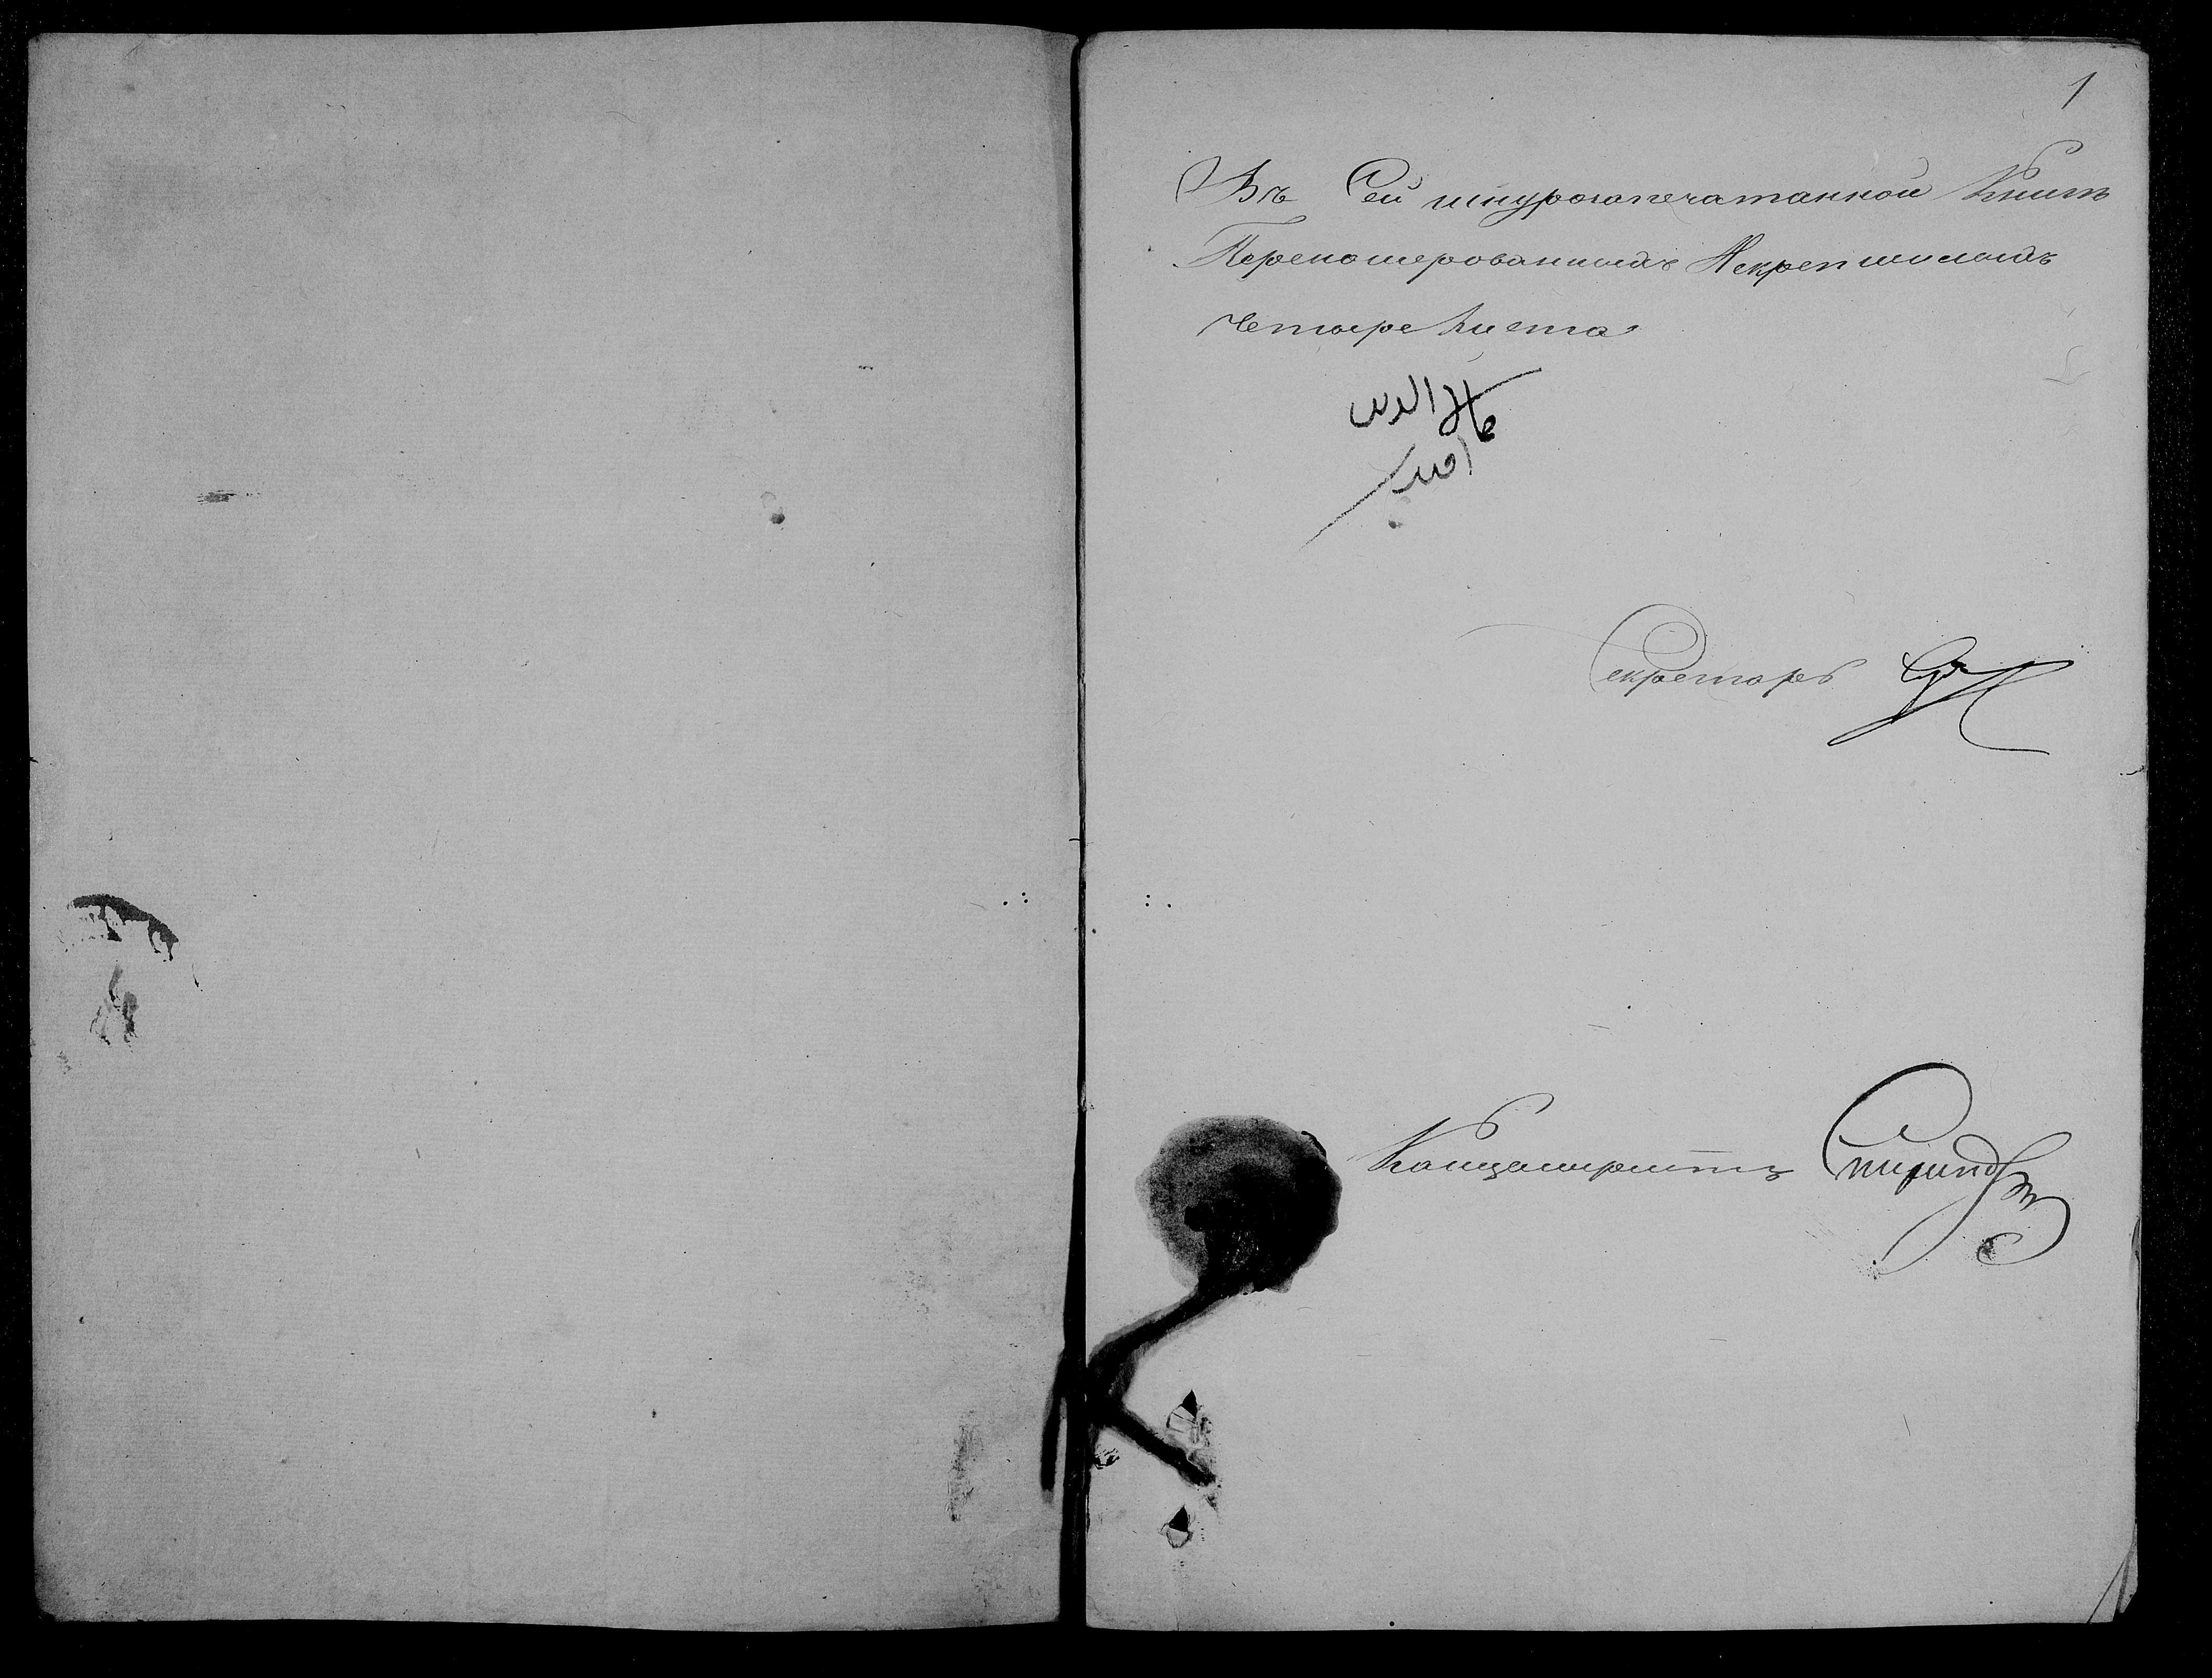 1
Въ Сей шнурозапечатанной Книгѣ
Перепомерованныхъ Искрепленныхъ
четыре листа
Секретарь
Канцеляристъ Спиридо